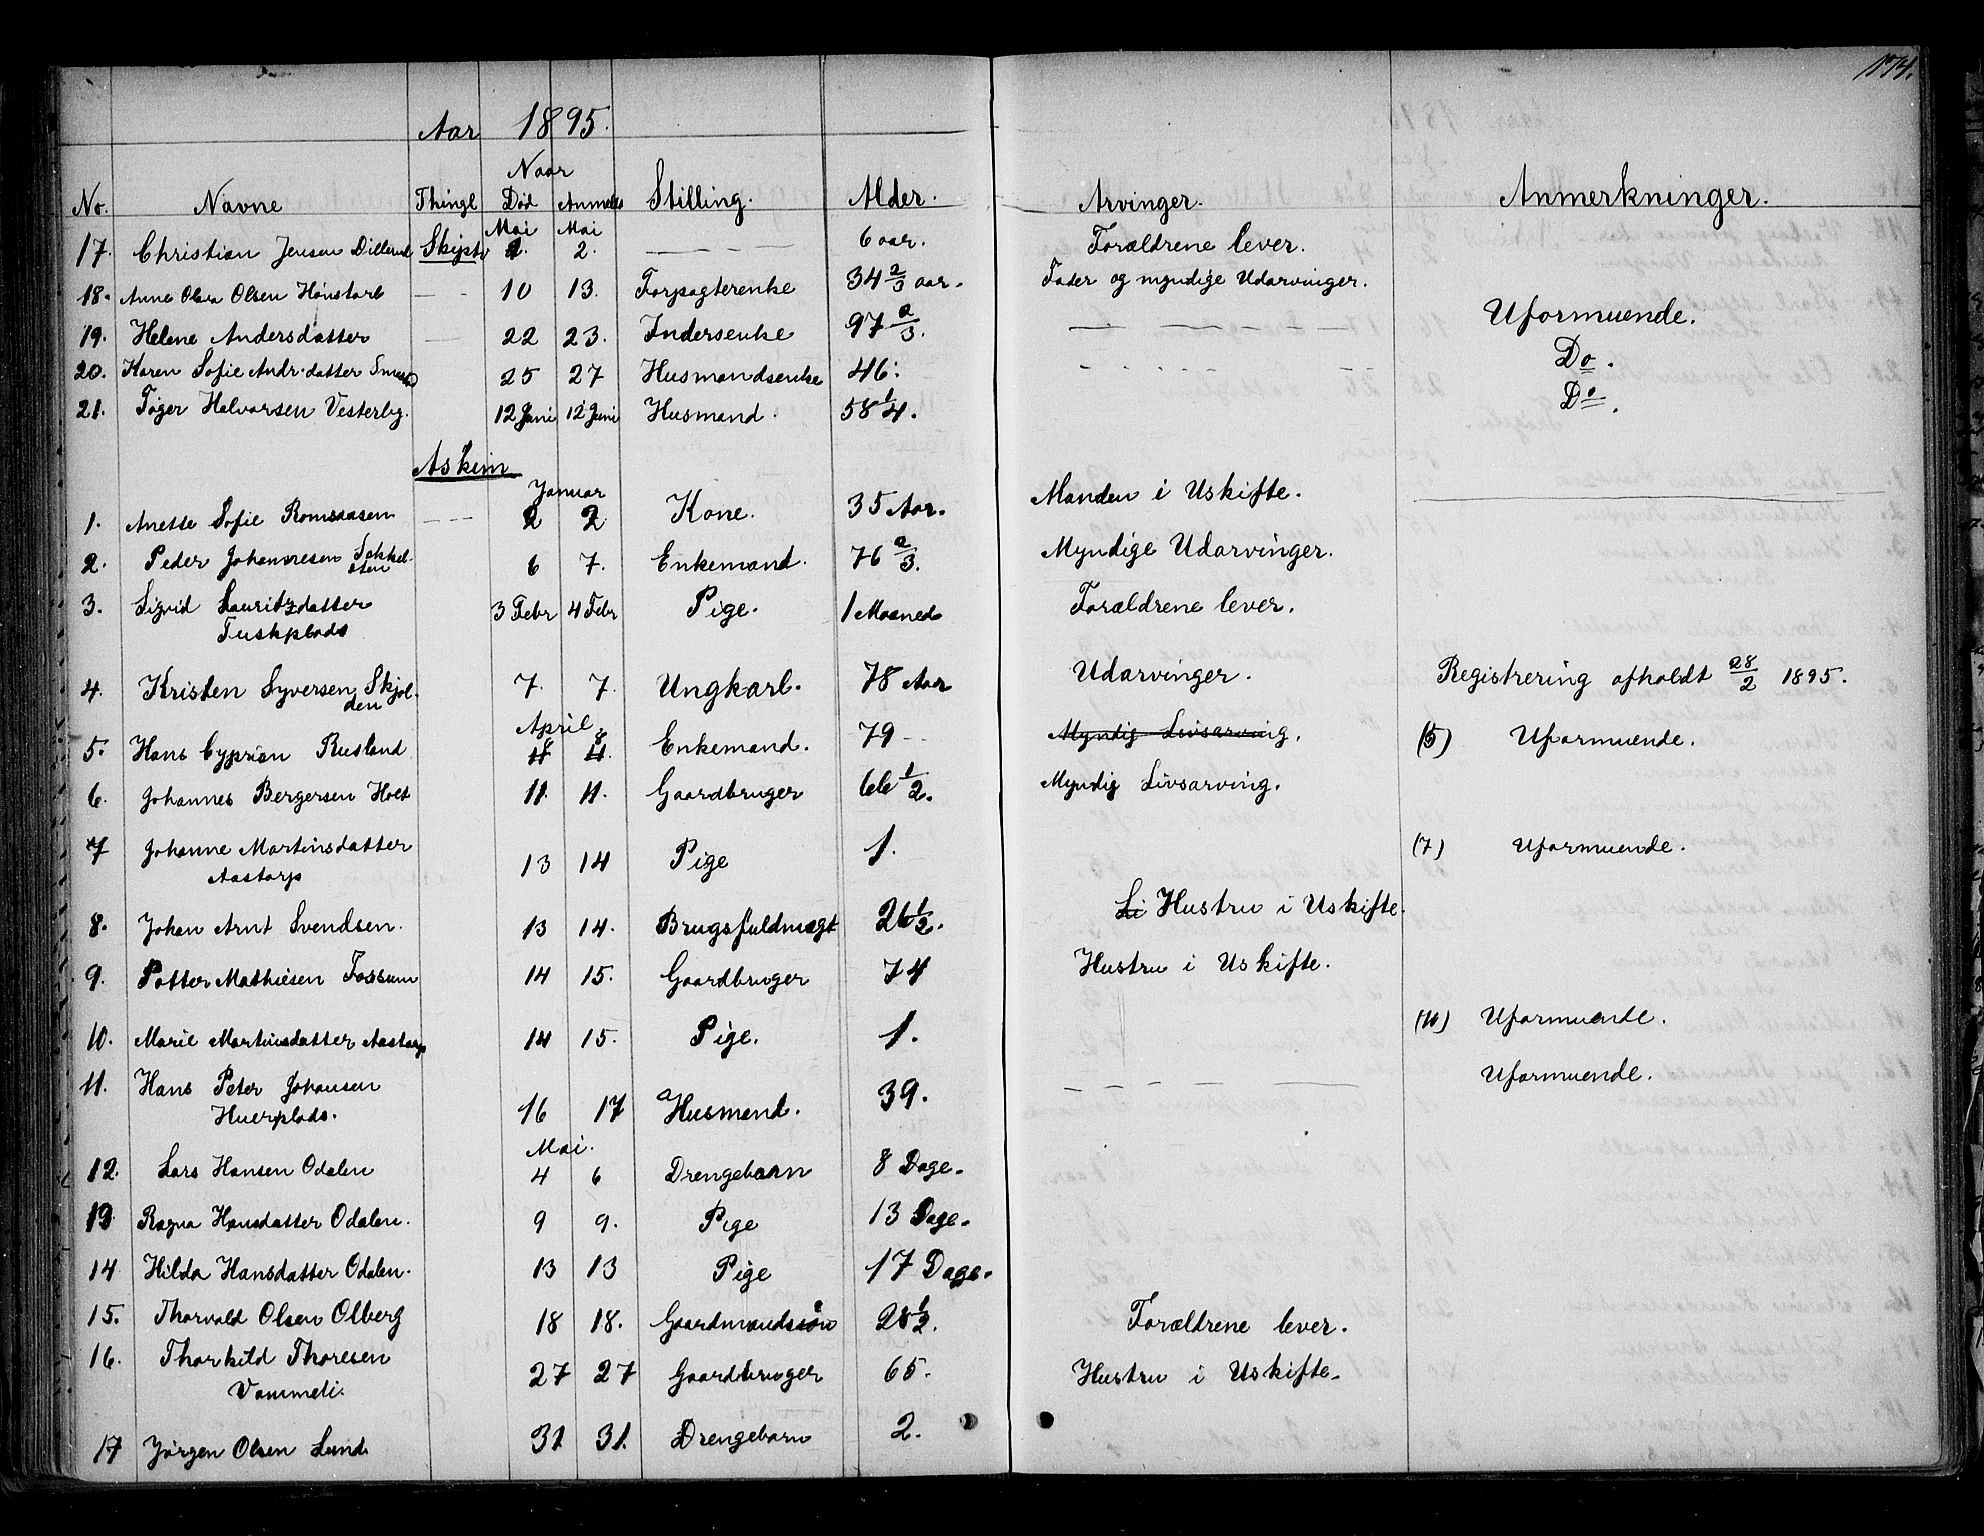 174.
Aar 1895.
Naar
No. Navne Thingl Død Anmeldt Stilling. Alder. Arvinger. Anmerkninger.
Mai Mai
17. Christian Jensen Dillerud Skipt. 1. 2. — — — 6 aar. Forældrene lever.
18. Anne Olava Olsen — — 10 13. Forpagterenke 34 2/3 aar. Fader og myndige Udarvinger.
19. Helene Andersdatter — 22 23. Indersenke 97 2/3. — — — — Uformuende.
20. Karen Sofie Andr.datter 25 27 Husmandsenke 46. Do.
21. Tøger Halvorsen Vesterby. 12 Juni 12 Juni Husmand. 58 1/4. Do.
Askim
Januar
1. Anette Sofie Romsaasen — — 2 2 Kone. 35 Aar. Manden i Uskifte.
2. Peder Johannesen 6 7. Enkemand. 76 2/3. Myndige Udarvinger.
3. Sigrid Lauritzdatter 3 Febr 4 Febr Pige. 1 Maaned Forældrene lever.
Tuskplads
4. Kristen Syversen Skjol- 7. 7. Ungkarl. 78 Aar Udarvinger. Registrering afholdt 28/2 1895.
den
April
8 8
5. Hans Cyprian Rusland 11 11. Enkemand. 79 — Myndig Livsarving. (5) Uformuende.
6. Johannes Bergersen Holt 11. 11. Gaardbruger 66 1/2. Myndig Livsarving.
7 Johanne Martinsdatter 13 14 Pige 1. (7) Uformuende.
Aastorp
8. Johan Arnt Svendsen. 13 14. Brugsfuldmægt 26 1/2. Li Hustru i Uskifte.
9. Petter Mathiesen Fossum 14 15. Gaardbruger 74 Hustru i Uskifte.
10. Marie Martinsdatter Aastorp 14 15. Pige. 1. (10) Uformuende.
11. Hans Peter Johansen 16 17 Husmand. 39. — — — — Uformuende.
Huerplads.
Mai.
12. Lars Hansen Odalen 4 6 Drengebarn 8 Dage.
13 Ragna Hansdatter Odalen. 9 9. Pige 13 Dage.
14 Hilda Hansdatter Odalen. 13 13 Pige 17 Dage.
15. Thorvald Olsen Olberg 18 18. Gaardmandssøn 28 1/2. Forældrene lever.
16. Thorkild Thoresen 27 27 Gaardbruger 65. Hustru i Uskifte.
Vammeli.
17 Jørgen Olsen Lund 31 31. Drengebarn 2.